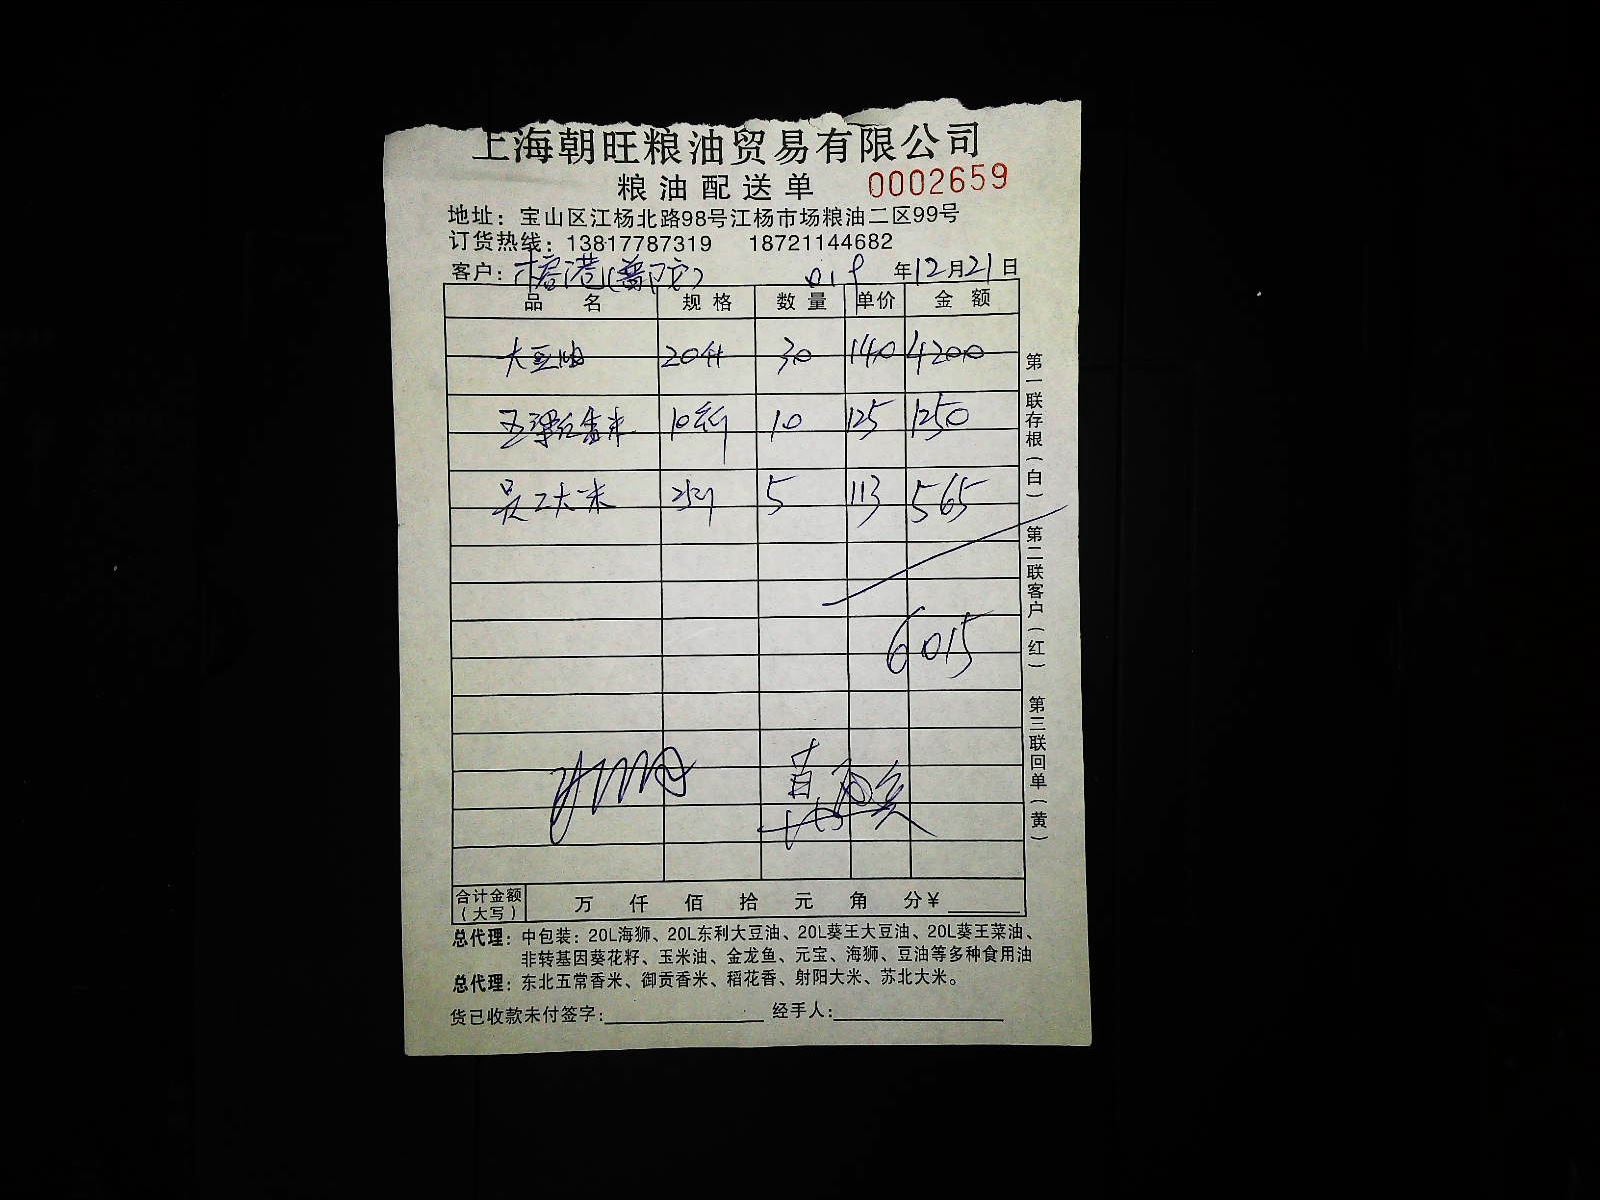 上海朝旺粮油贸易有限公司
粮油配送单 0002659
地址：宝山区江杨北路98号江杨市场粮油二区99号
订货热线：13817787319 18721144682
客户：港(普陀) 019年12月21日
品名 规格 数量 单价 金额
大豆油 20升 30 140 4200
香米 10斤 10 125 1250
大米 5 113 565
6015
合计金额（大写） 万 仟 佰 拾 元 角 分￥
总代理：中包装：20L海狮、20L东利大豆油、20L葵王大豆油、20L葵王菜油、
非转基因葵花籽、玉米油、金龙鱼、元宝、海狮、豆油等多种食用油
总代理：东北五常香米、御贡香米、稻花香、射阳大米、苏北大米。
货已收款未付签字: 经手人:
第一联存根(白) 第二联客户(红) 第三联回单(黄)